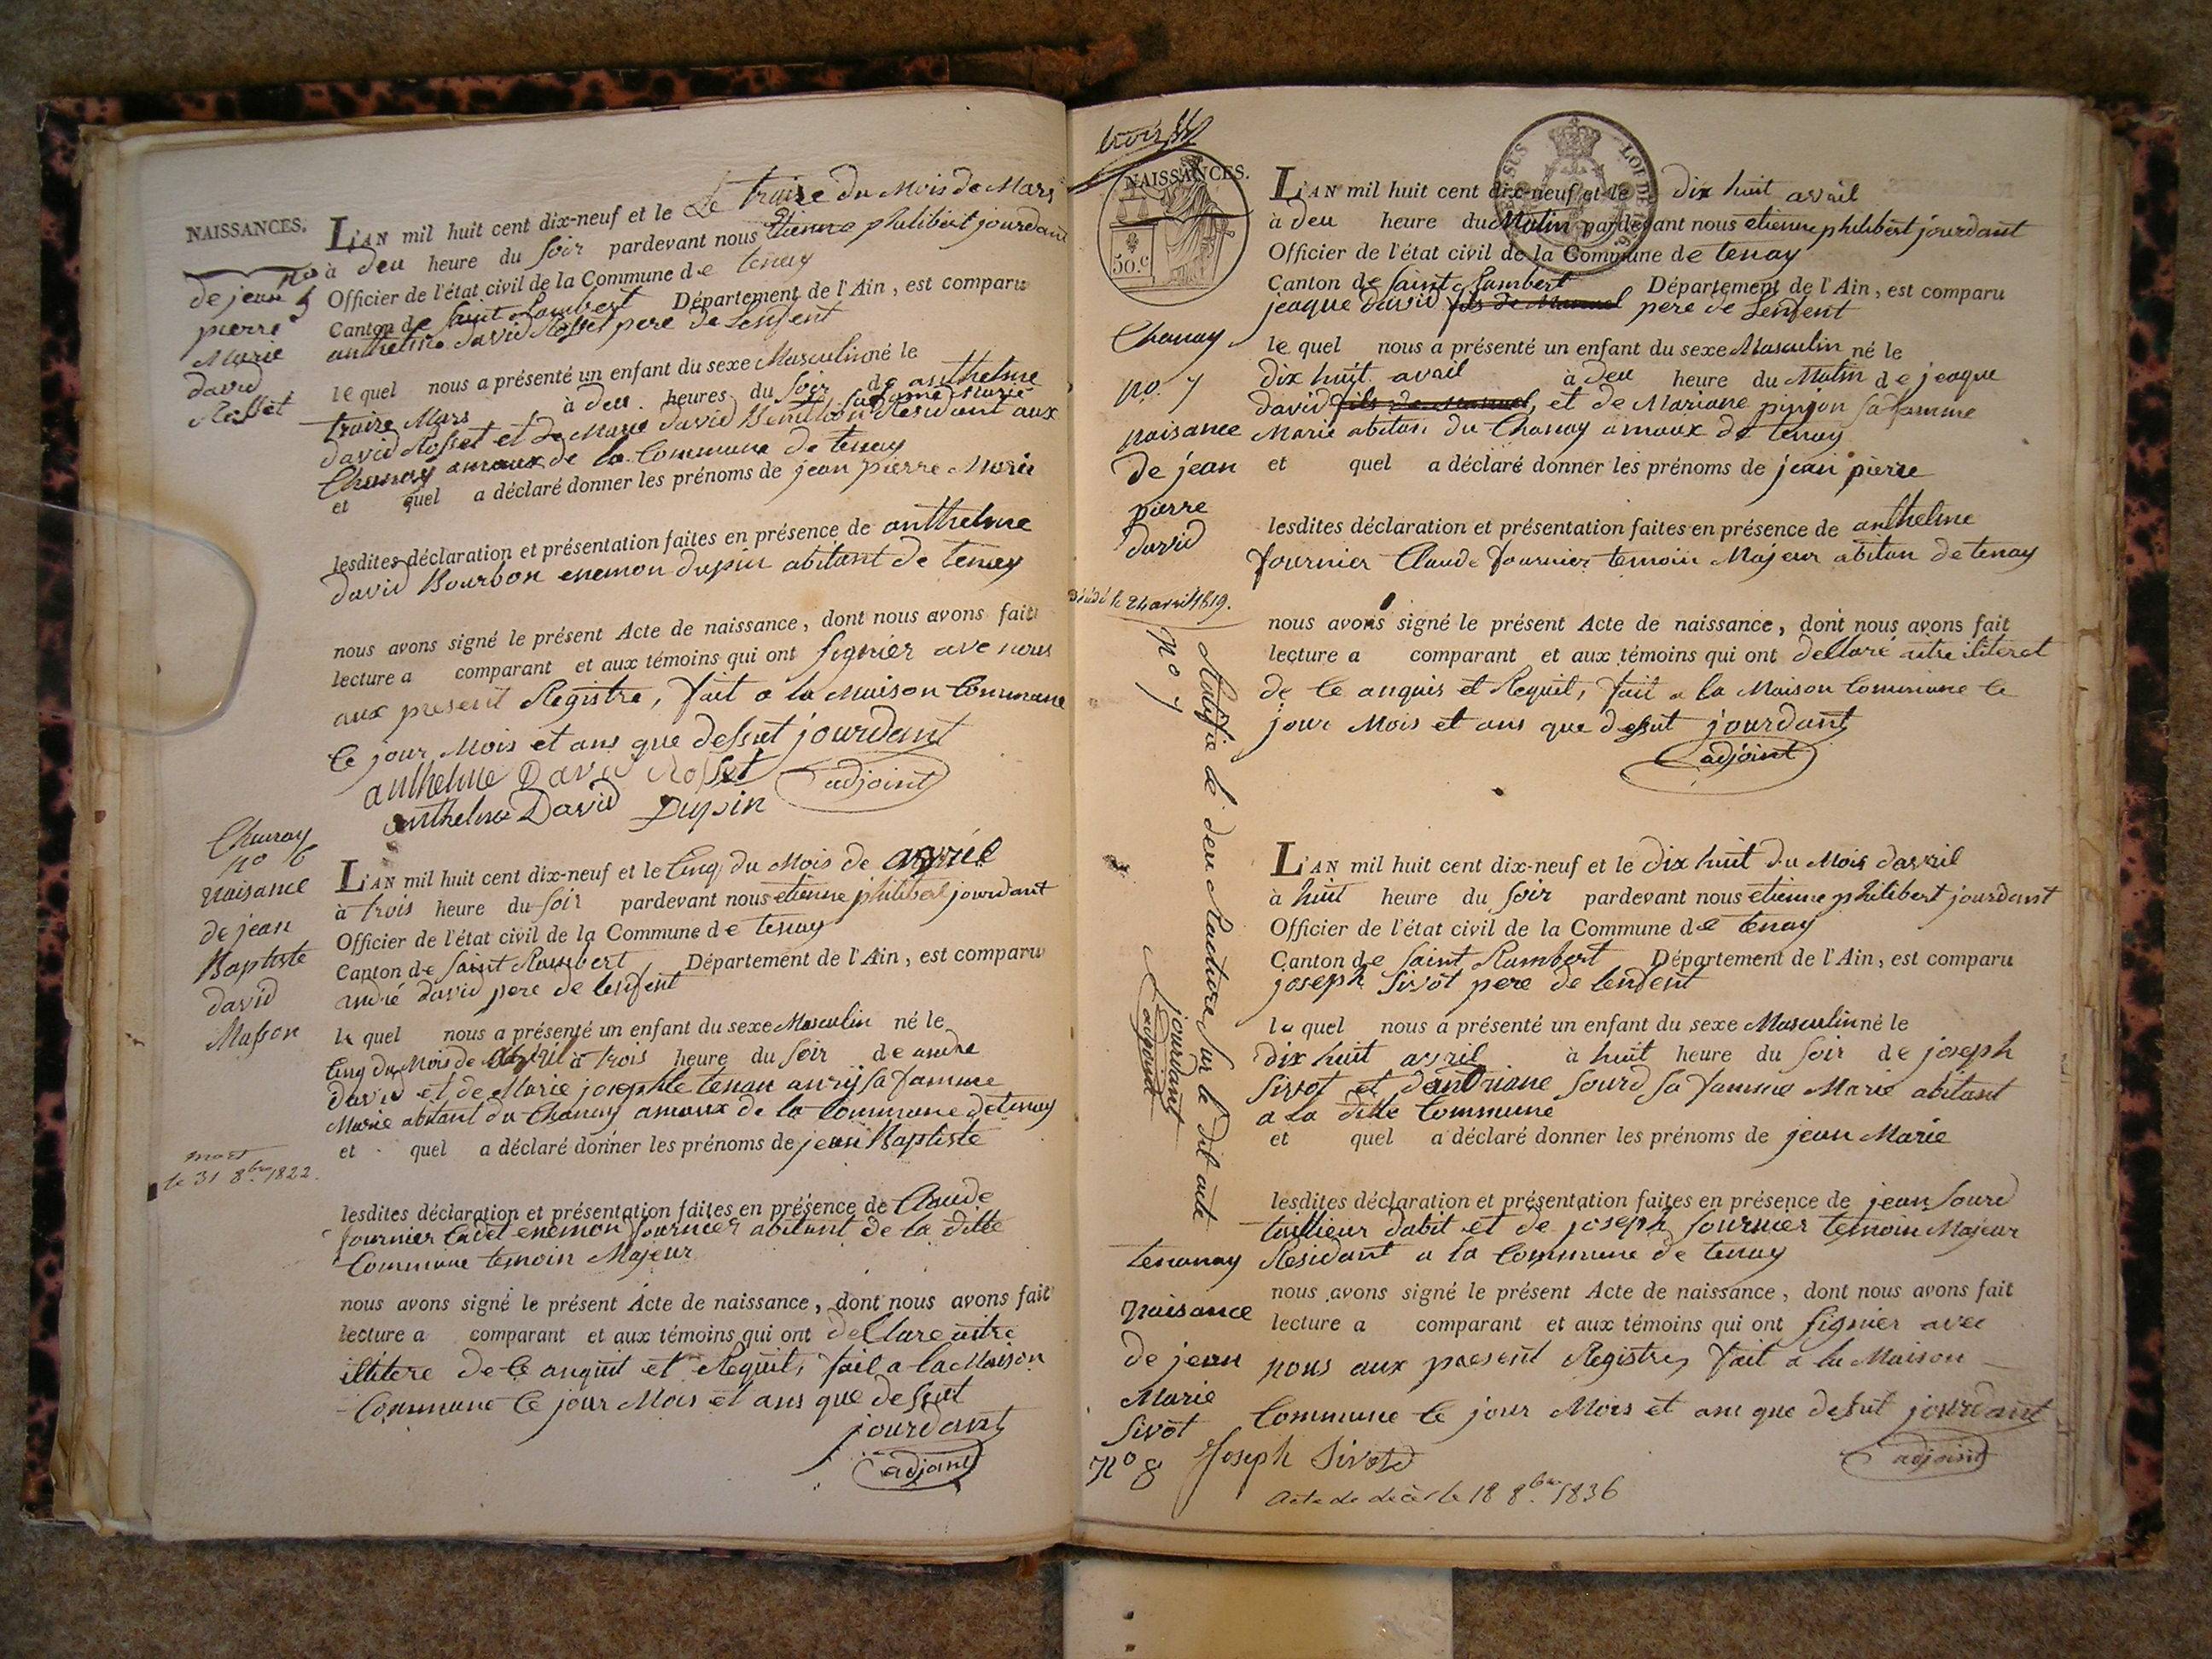 NAISSANCES.
no 5
de jean
pierre
Marie
david
Rosset
L'AN mil huit cent dix-neuf et le Le traize du Mois de Mars
à deu heure du soir pardevant nous Etienne philibert jourdant
Officier de l'état civil de la Commune de tenay
Canton de Saint Rambert Département de l'Ain, est comparu
anthelme david Rosset pere de Lenfent
le quel nous a présenté un enfant du sexe Masculin né le
traize Mars à deu heures du soir de anthelme
david Rosset et de Marie david sa fame Marie
Residant aux
Chanay amaux de la Commune de tenay
et quel a déclaré donner les prénoms de jean pierre Marie
lesdites déclaration et présentation faites en présence de anthelme
david Bourbon enemon dupin abitant de tenay
nous avons signé le présent Acte de naissance, dont nous avons fait
lecture a comparant et aux témoins qui ont signier ave nous
aux present Registre, fait a la Maison Commune
le jour Mois et ans que dessut jourdant
anthelme David Rosset adjoint
anthelme David Dupin
Chanay
no 6
naisance
de jean
Baptiste
david
Masson
mort
le 31 8bre 1822.
L'AN mil huit cent dix-neuf et le Cinq du Mois de avril
à trois heure du soir pardevant nous etienne philibert jourdant
Officier de l'état civil de la Commune de tenay
Canton de Saint Rambert Département de l'Ain, est comparu
andré david pere de lenfent
le quel nous a présenté un enfant du sexe Masculin né le
Cinq du Mois de avril à trois heure du soir de andre
david et de Marie josephte tenan sa famme
Marie abitant du Chanay amaux de la Commune de tenay
et quel a déclaré donner les prénoms de jean Baptiste
lesdites déclaration et présentation faites en présence de Claude
fournier Cadet enemon fournier abitant de la ditte
Commune temoin Majeur
nous avons signé le présent Acte de naissance, dont nous avons fait
lecture a comparant et aux témoins qui ont dellare aitre
illitere de ce anquit et Requit, fait a la Maison
Commune le jour Mois et ans que dessut
jourdant
adjoint
trois
NAISSANCES.
50.c
Chanay
no. 7
naisance
de jean
pierre
david
Décédé le 24 avril 1819.
no 7
L'AN mil huit cent dix-neuf et le dix huit avril
à deu heure du Matin pardevant nous etienne philibert jourdant
Officier de l'état civil de la Commune de tenay
Canton de Saint Rambert Département de l'Ain, est comparu
jeaque david fils de Manuel pere de Lenfent
le quel nous a présenté un enfant du sexe Masculin né le
dix huit avail à deu heure du Matin de jeaque
david fils de Manuel, et de Mariane pingon sa famme
Marie abitan du Chanay amaux de tenay
et quel a déclaré donner les prénoms de jean pierre
lesdites déclaration et présentation faites en présence de anthelme
fournier Claude fournier temoin Majeur abitan de tenay
nous avons signé le présent Acte de naissance, dont nous avons fait
lecture a comparant et aux témoins qui ont dellaré aitre iliteret
de ce anquis et Requit, fait a la Maison Commune le
jour Mois et ans que dessut jourdant
adjoint
Ratifie le deu Racture sur le dit acte
jourdant
adjoint
L'AN mil huit cent dix-neuf et le dix huit du Mois davril
à huit heure du soir pardevant nous etienne philibert jourdant
Officier de l'état civil de la Commune de tenay
Canton de Saint Rambert Département de l'Ain, est comparu
joseph Sivot pere de lenfent
le quel nous a présenté un enfant du sexe Masculin né le
dix huit avril à huit heure du soir de joseph
Sivot et dandriane Sourd sa famme Marie abitant
a la ditte Commune
et quel a déclaré donner les prénoms de jean Marie
lesdites déclaration et présentation faites en présence de jean Sourd
taillieur dabit et de joseph fournier temoin Majeur
Residant a la Commune de tenay
nous avons signé le présent Acte de naissance, dont nous avons fait
lecture a comparant et aux témoins qui ont signier avec
nous aux present Registre, fait a la Maison
Commune le jour Mois et ans que desut jourdant
adjoint
tenanay
naisance
de jean
Marie
Sivot
no 8
Joseph Sivot
Acte de décès le 18 8bre 1836